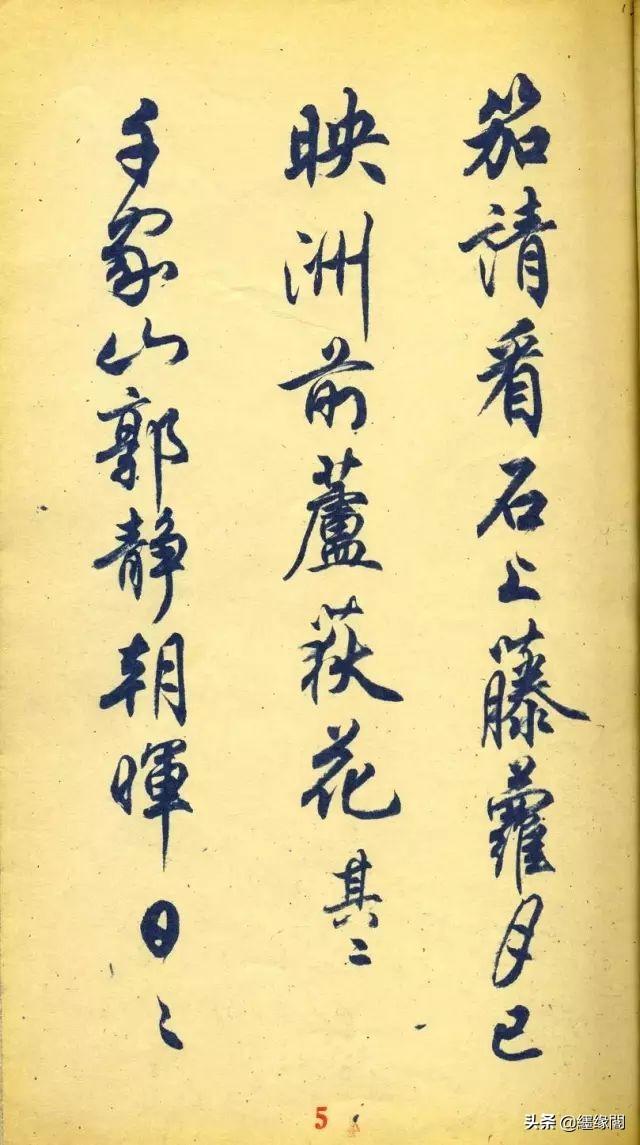 笳請看石上藤蘿月已
映洲前蘆荻花其二
千家山郭靜朝暉日〻
5
头条@纆缘閣